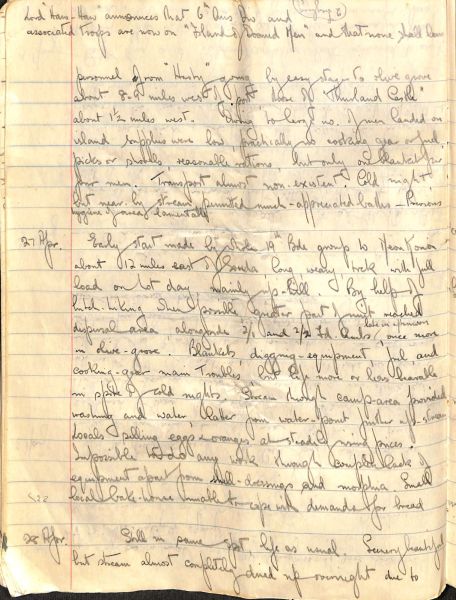 Lord Haw-Haw announces that 6th Aus Div and
associated troops are now on "Island of Doomed Men" and that none shall leave
personnel from "Hasty" going by easy stages to olive grove
about 8-9 miles west of port those of "Thurland Castle"
about 1½ miles west. Owing to large no. of men landed on
island supplies were low, practically no cooking gear or fuel,
picks or shovels reasonable rations, but only one blanket per
four men. Transport almost non-existent. Cold night
but near-by stream permitted much-appreciated bathes - Previous
hygiene of area lamentable
27 Apr. Early start made by whole 19th Bde group to
about 12 miles east of Souda long weary trek with full
load on hot day mainly up-hill. By help of
hitch-hiking when possible greater part of unit reached
dispersal area alongside 2/1 and 2/2 Fd. Ambs late in afternoon once more
in olive-grove. Blankets, digging-equipment, fuel, and
cooking-gear main troubles but life more or less bearable
in spite of cold nights. Stream through camp area provided
washing and water, latter from water-point further up-stream
Locals selling eggs & oranges at steadily rising prices.
Impossible to do any work through complete lack of
equipment apart from shell-dressings and morphia. Small
local bake-house unable to cope with demands for bread
28 Apr. Still in same spot, life as usual. Scenery beautiful
but stream almost completely dried up overnight due to